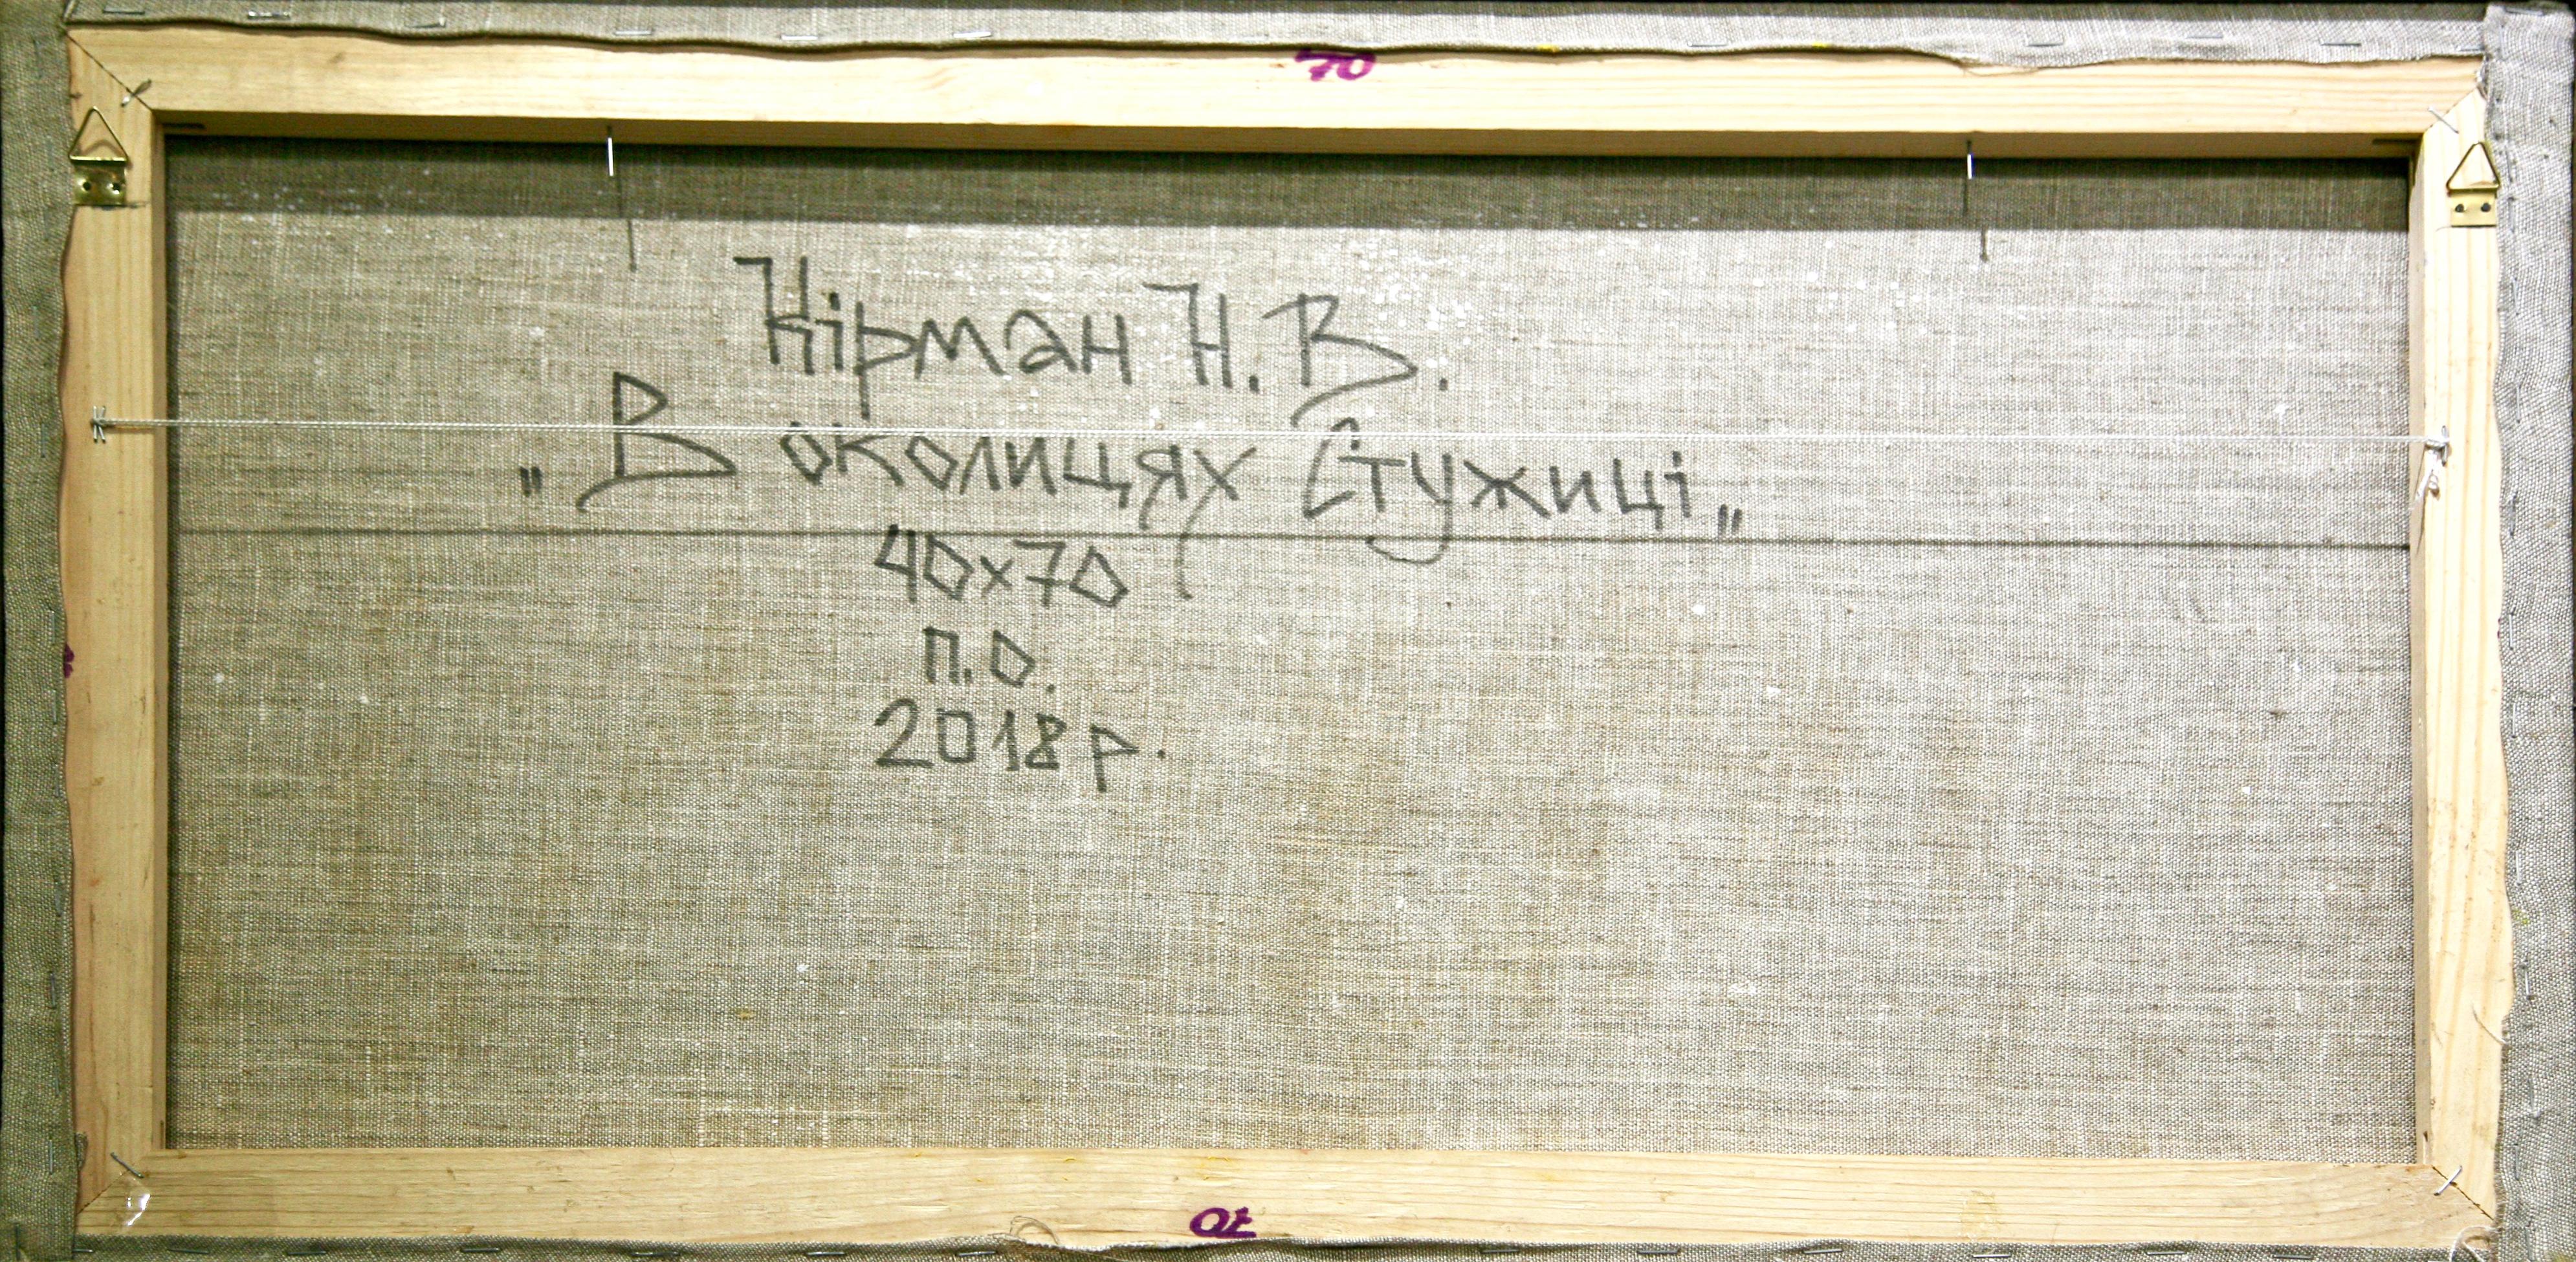 70
Кірман Н. В.
„ В околицях Стужиці „
40х70
п.о.
2018 р.
70